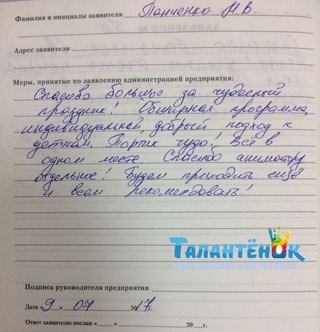 Фамилия и инициалы заявителя Панченко Н.В.
Адрес заявителя
Меры, принятые по заявлению администрацией предприятия:
Спасибо большое за чудесный
праздник! Обширная программа,
индивидуальный, добрый подход к
деткам. Тортик чудо! Всё в
одном месте. Спасибо аниматору
отдельное! Будем приходить ещё
и всем рекомендовать!
Талантёнок
Подпись руководителя предприятия
Дата « 9 » 07 2017г.
Ответ заявителю послан « » 20 г.